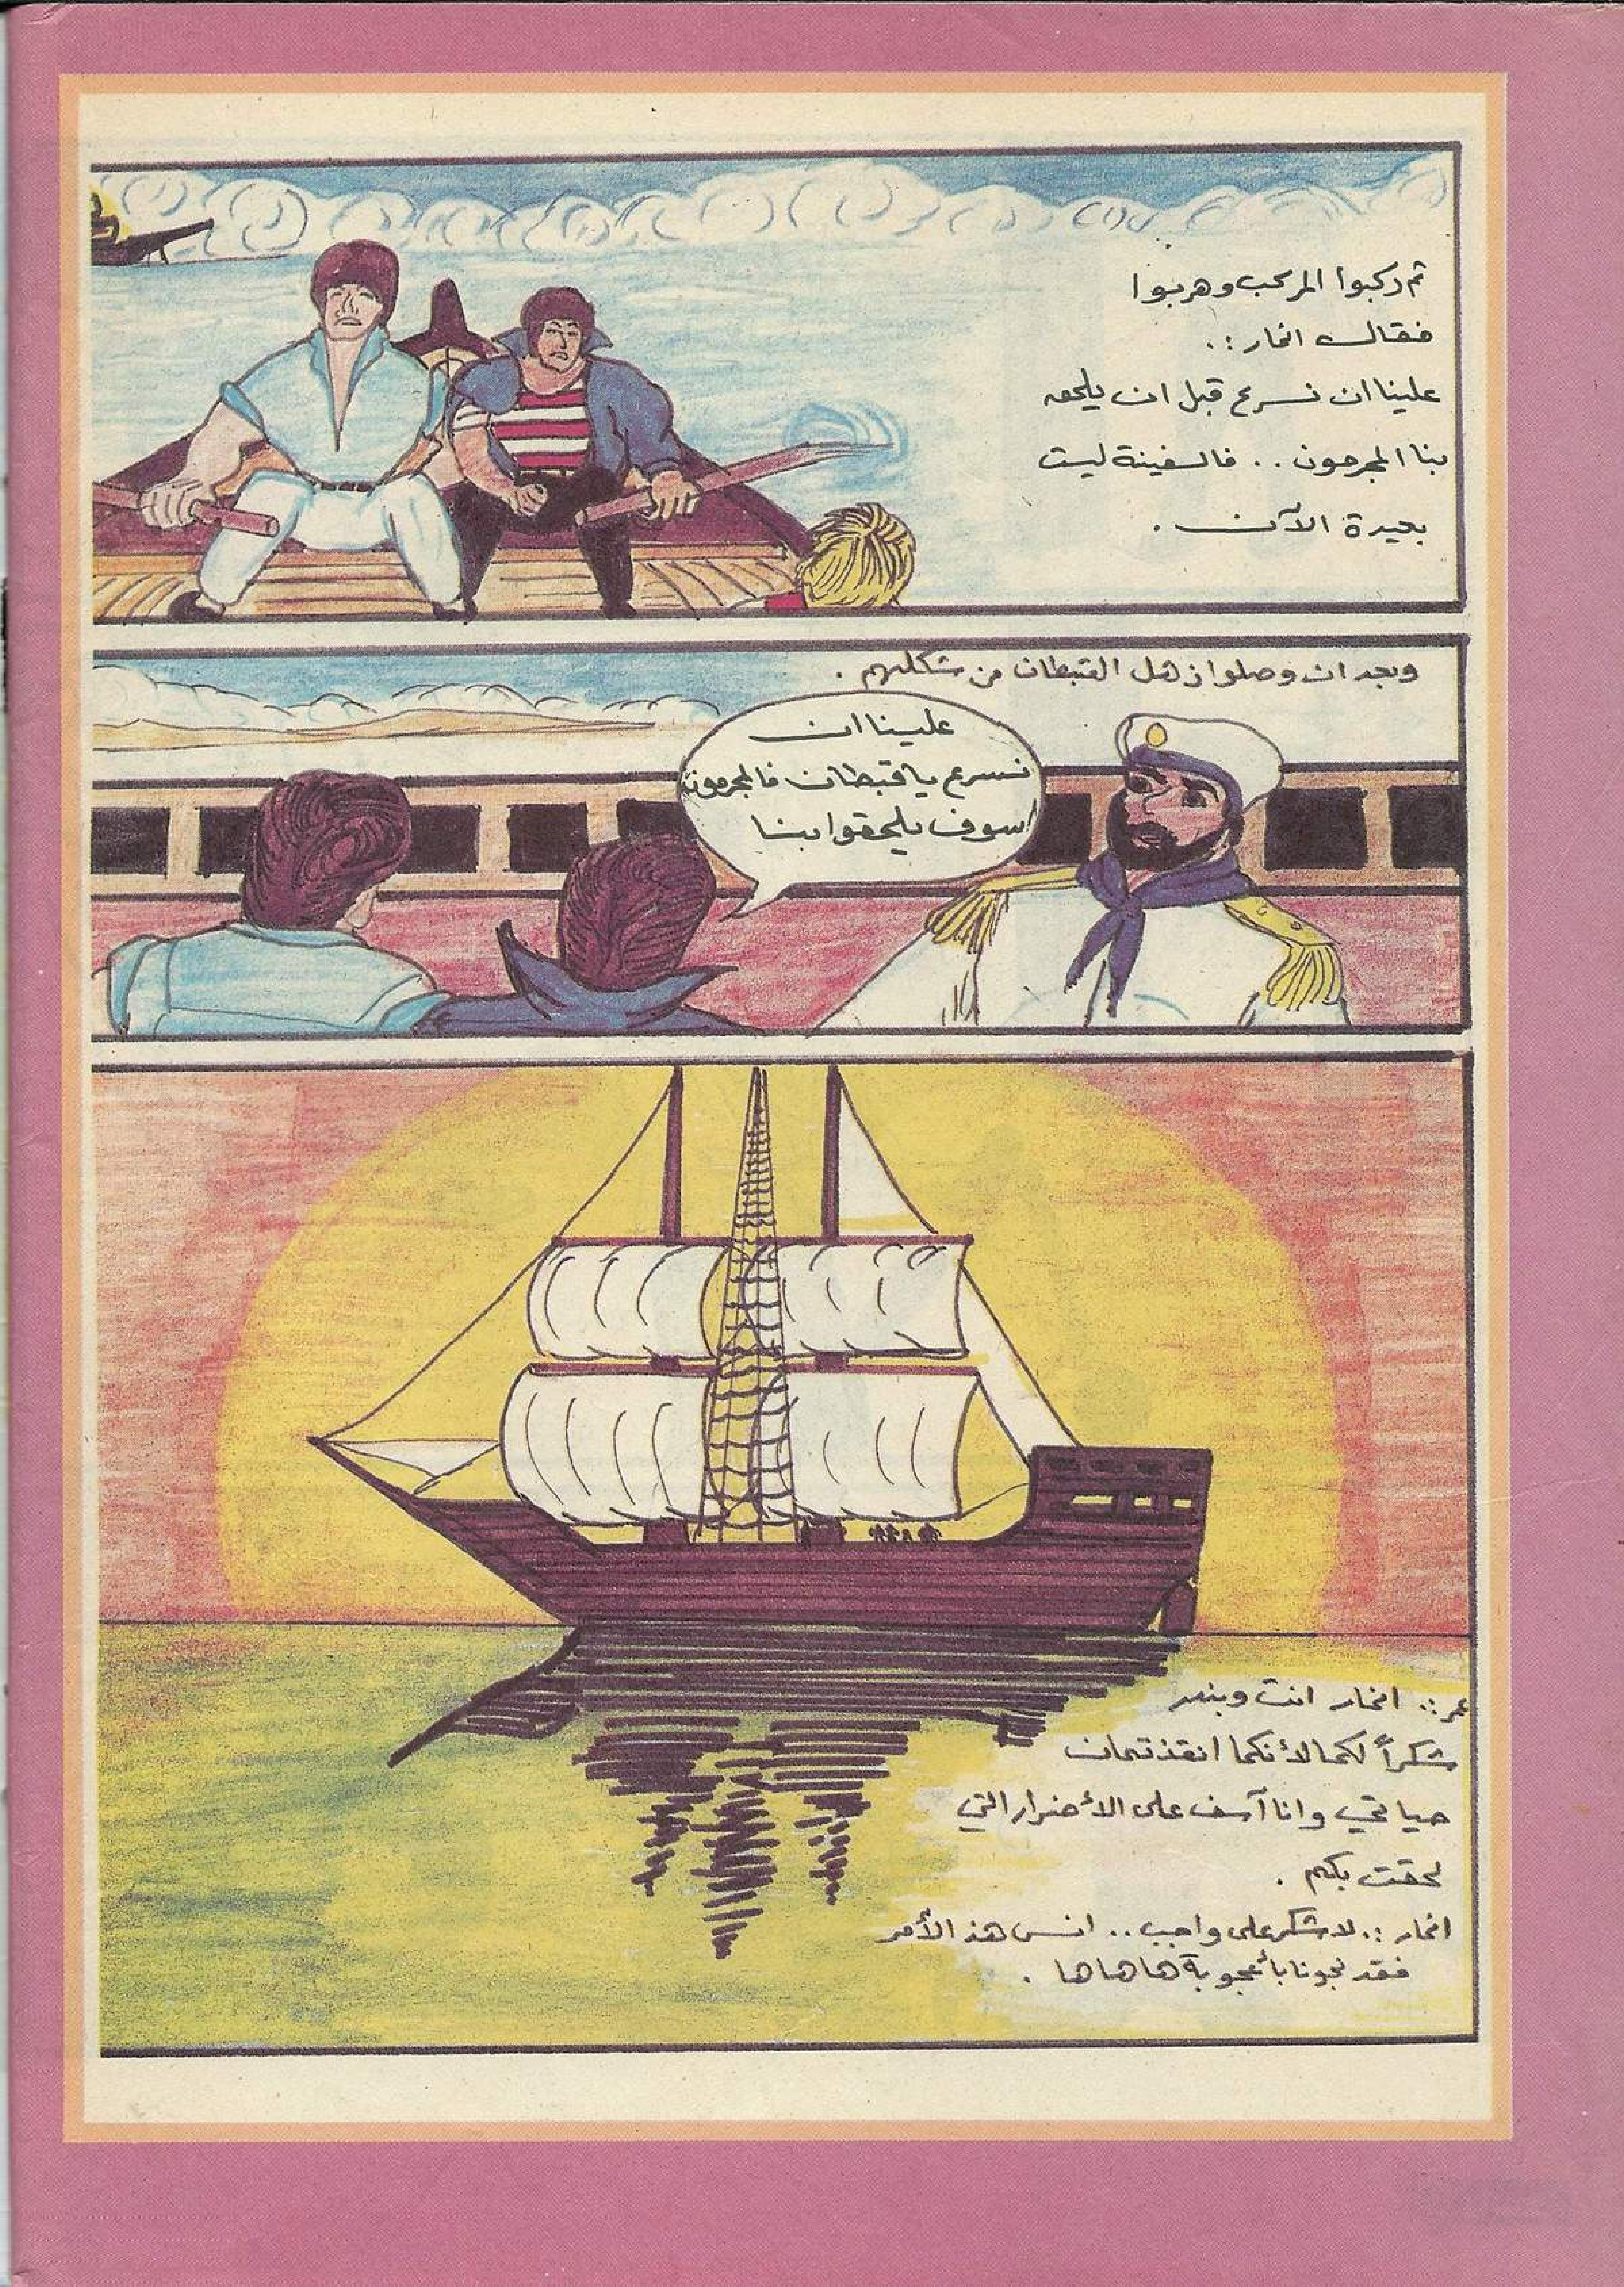 ثم ركبوا المركب وهربوا
فقال انمار :.
علينا ان نسرع قبل ان يلحق
بنا المجرمون .. فالسفينة ليست
بعيدة الآن .
وبعد ان وصلوا ذهل القبطان من شكلهم .
علينا ان
نسرع يا قبطان فالمجرمون
سوف يلحقوا بنا
عمر :. انمار انت وبندر
شكراً لكما لأنكما انقذتمان
حياتي وانا آسف على الأضرار التي
لحقت بكم .
انمار :. لا شكر على واجب .. انس هذ الأمر
فقد نجونا بأعجوبة هاهاها .